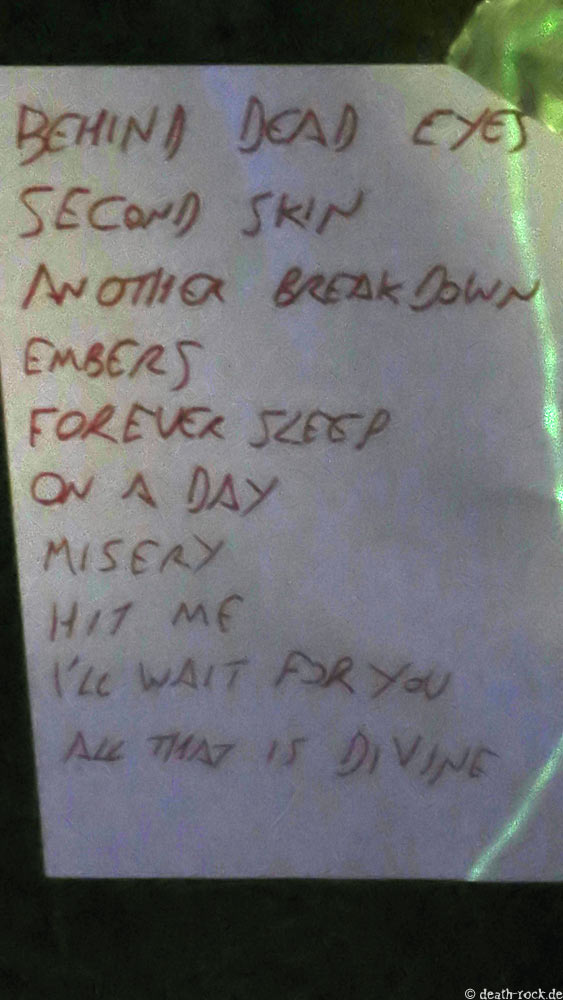 BEHIND DEAD EYES
SECOND SKIN
ANOTHER BREAKDOWN
EMBERS
FOREVER SLEEP
ON A DAY
MISERY
HIT ME
I'LL WAIT FOR YOU
ALL THAT IS DIVINE
© death-rock.de